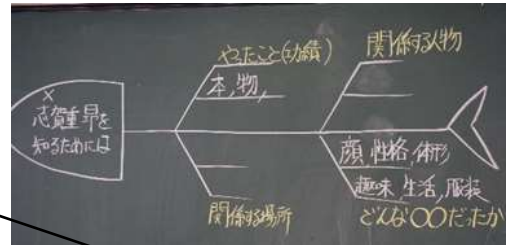 志賀重昂を
知るためには
やったこと(功績)
本,物,
関係する人物
関係する場所
顔,性格,体形
趣味,生活,服装
どんな〇〇だったか